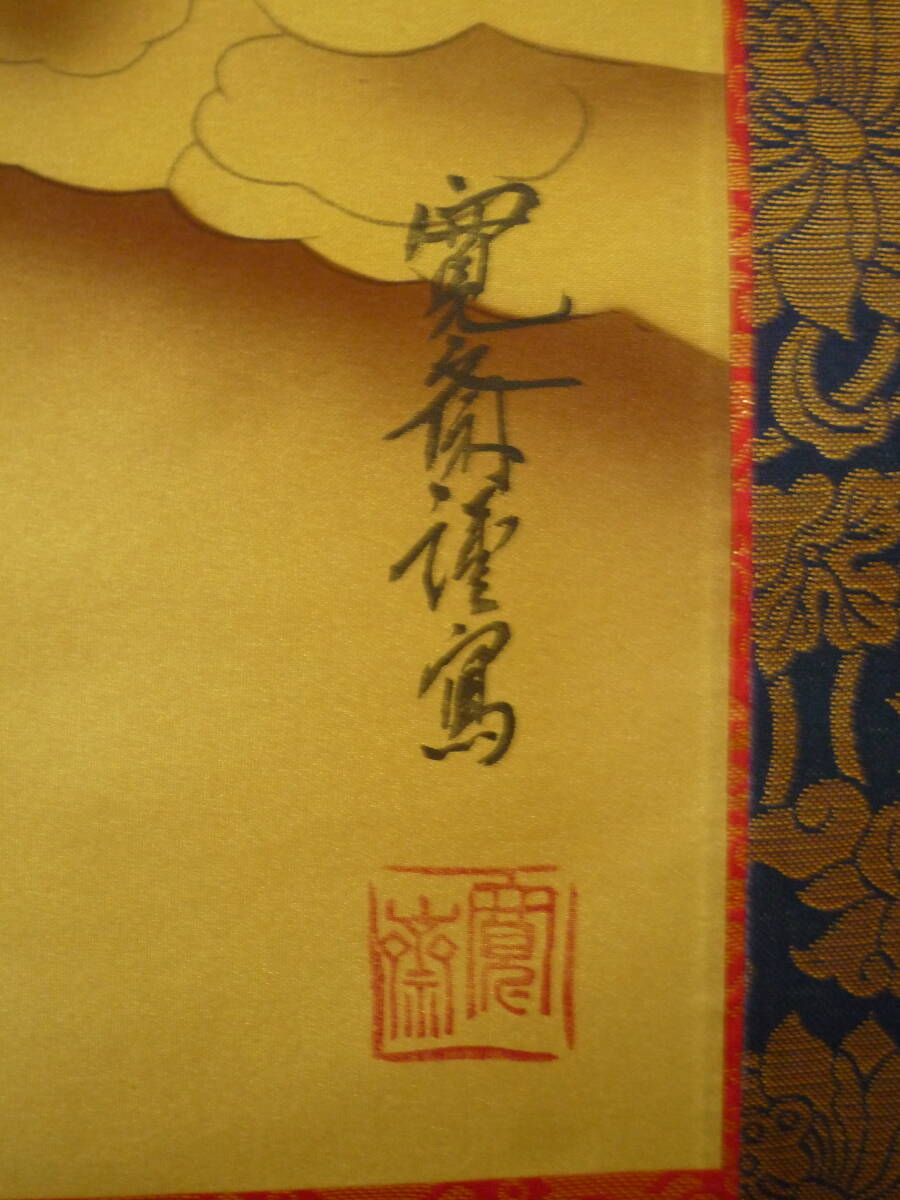 寛斎謹寫
寛斎